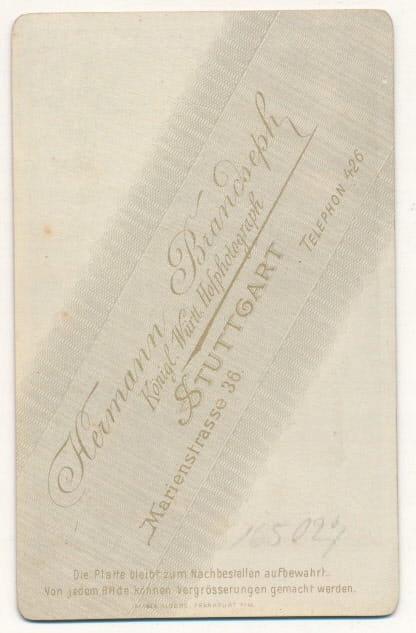 Hermann Brandseph
Königl. Württ. Hofphotograph
STUTTGART
Marienstrasse 36.
TELEPHON 426
Die Platte bleibt zum Nachbestellen aufbewahrt.
Von jedem Bilde können Vergrösserungen gemacht werden.
FRANKFURT